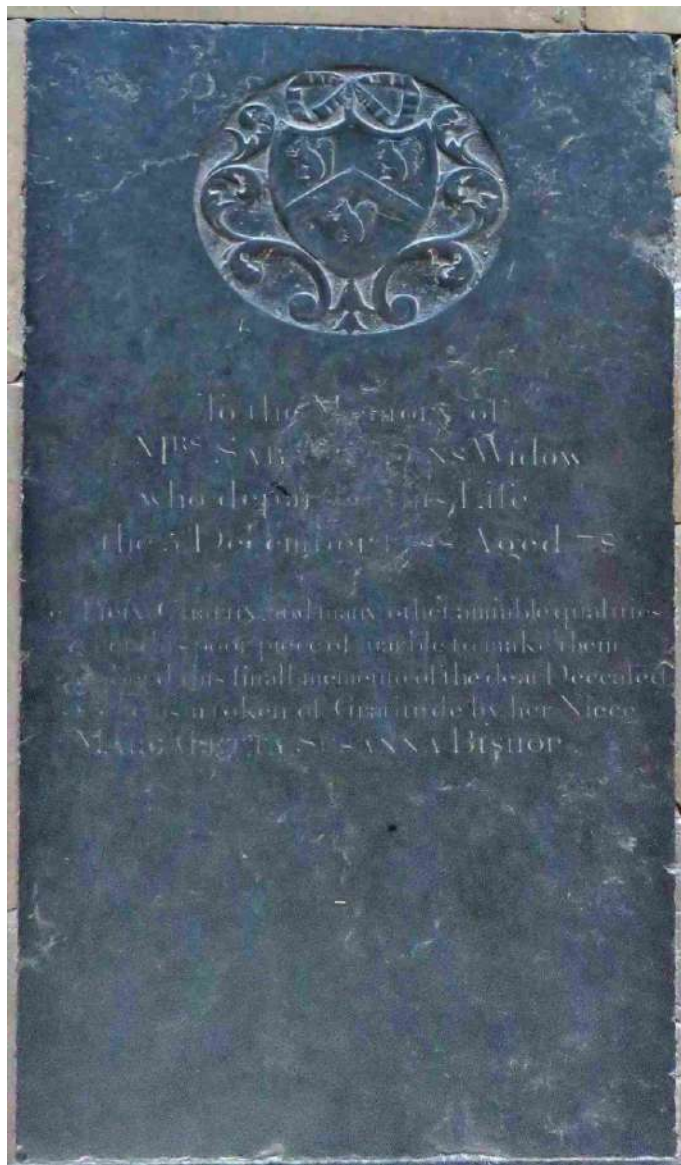 To the Memory of
MRS Widow
who this Life
the 5 December Aged 78
Piety, Charity, and many other amiable qualities
poor piece of marble to make them
this small memento of the dear Deceased
as a token of Gratitude by her Niece
MARGARETTA SUSANNA BISHOP